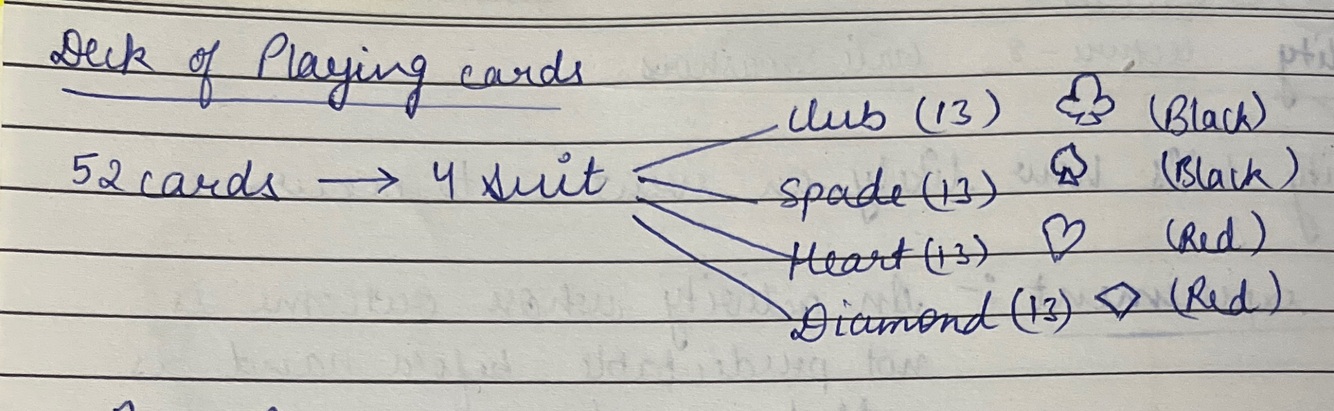 Deck of Playing cards
club (13) ♧ (Black)
52 cards → 4 suit
Spade (13) ♤ (Black)
Heart (13) ♡ (Red)
Diamond (13) ◇ (Red)